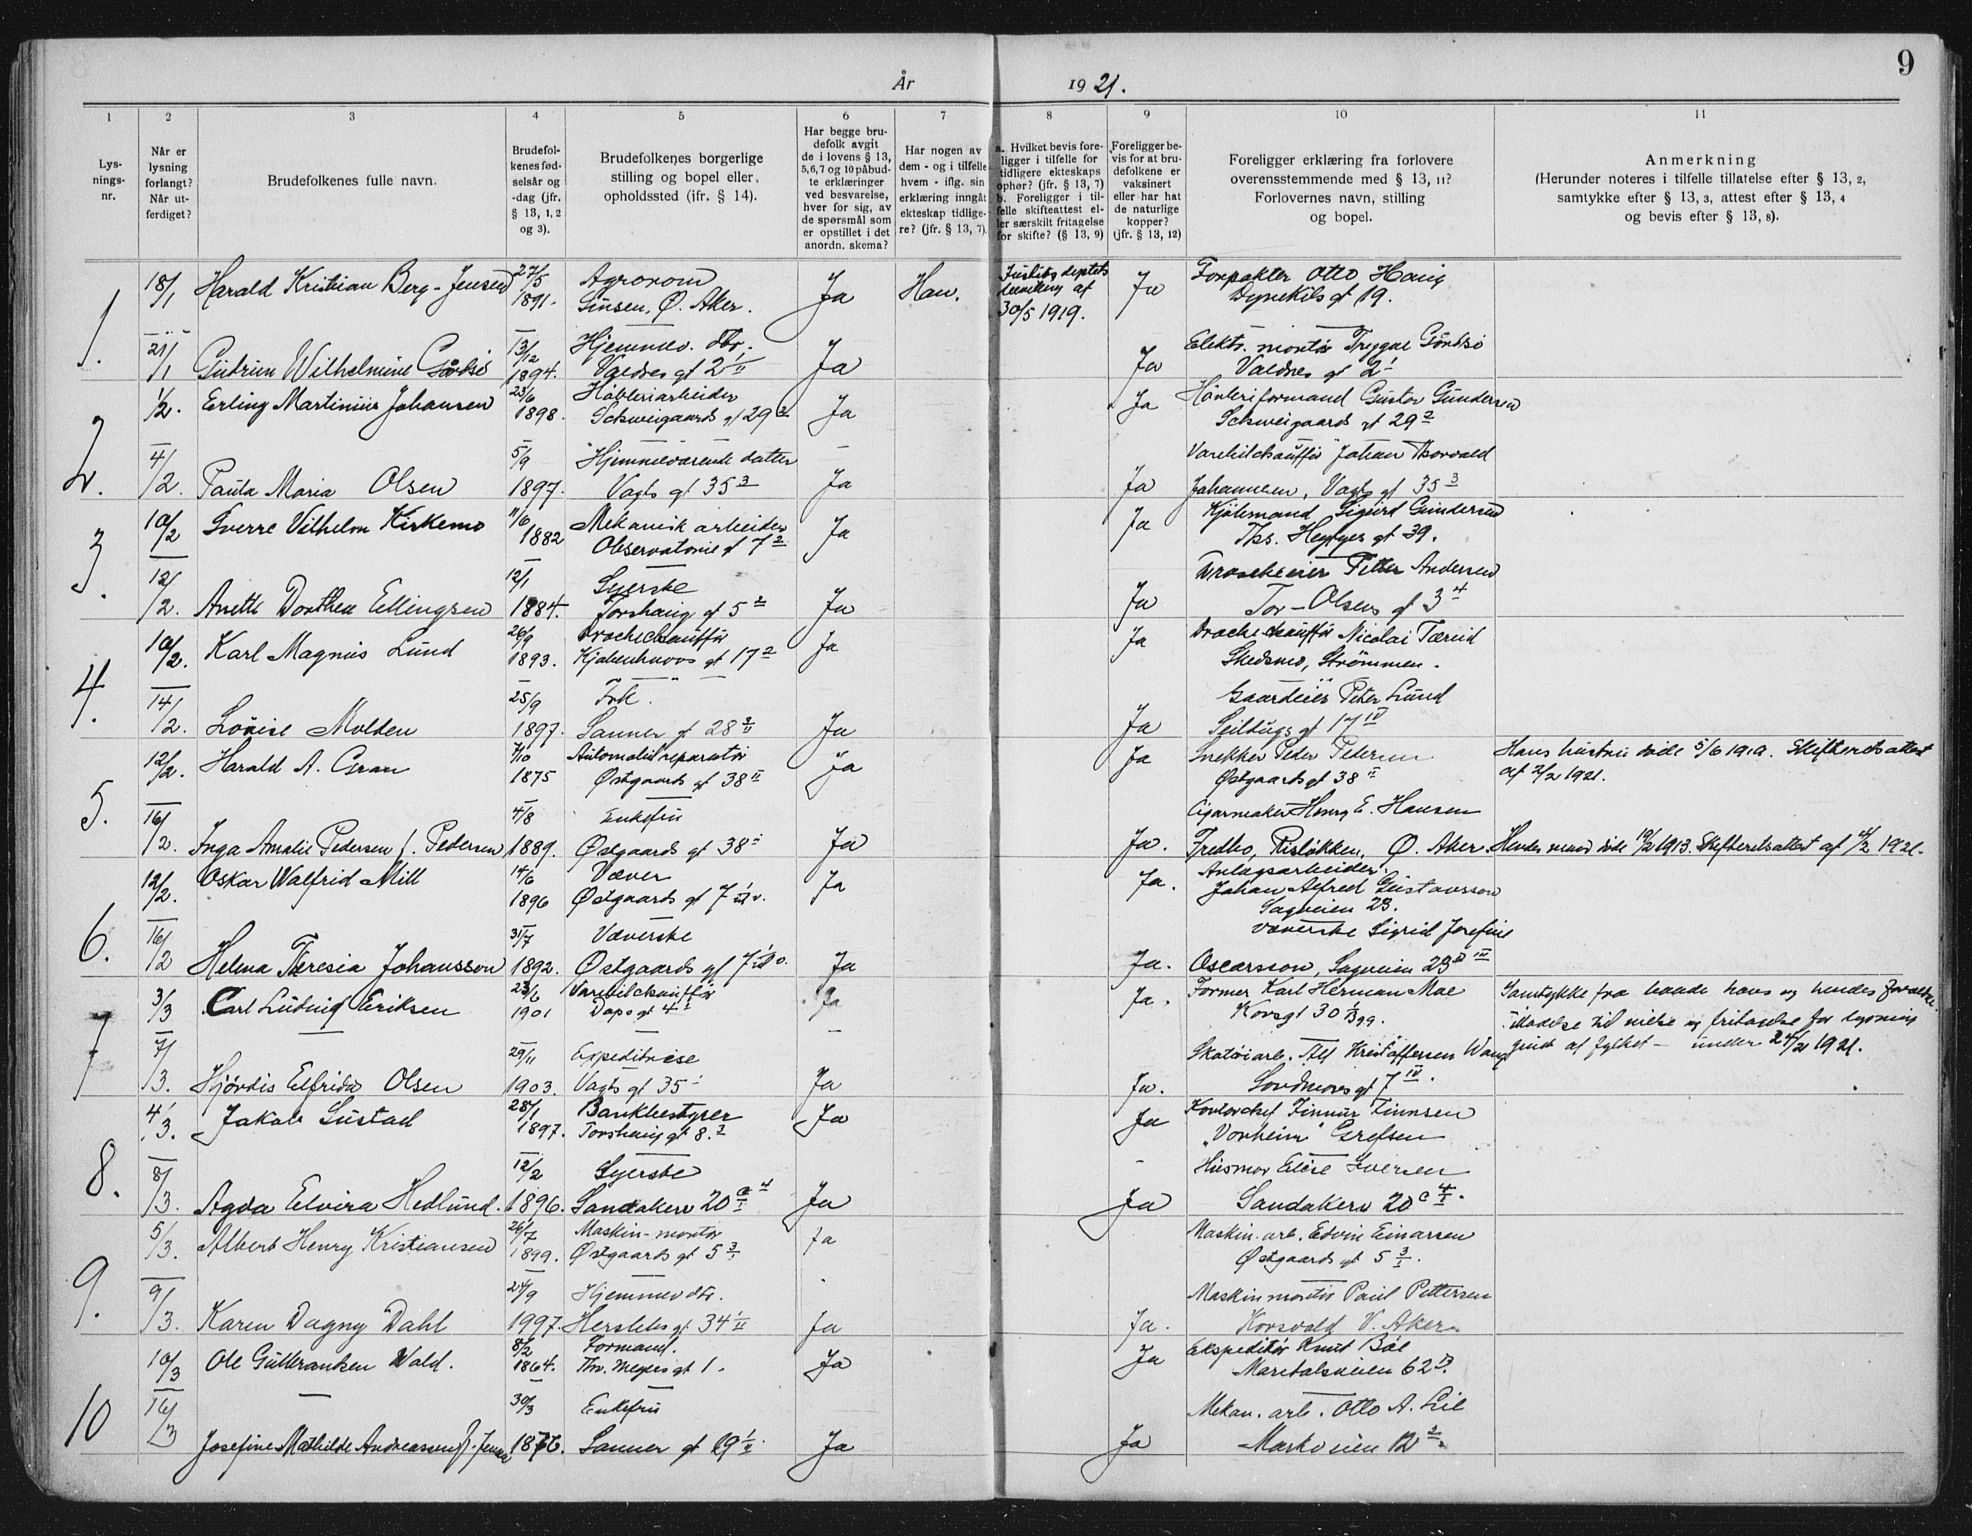 9
År 1921.
1 2 3 4 5 6 7 8 9 10 11
Lys-
nings-
nr.
Når er
lysning
forlangt?
Når ut-
ferdiget?
Brudefolkenes fulle navn.
Brudefol-
kenes fød-
selsår og
-dag (jfr.
§ 13, 1, 2
og 3).
Brudefolkenes borgerlige
stilling og bopel eller
opholdssted (jfr. § 14).
Har begge bru-
defolk avgit
de i lovens § 13,
5, 6, 7 og 10 påbud-
te erklæringer
ved besvarelse,
hver for sig, av
de spørsmål som
er opstillet i det
anordn. skema?
Har nogen av
dem - og i tilfelle
hvem - iflg. sin
erklæring inngåt
ekteskap tidlige-
re? (jfr. § 13, 7).
a. Hvilket bevis fore-
ligger i tilfelle for
tidligere ekteskaps
ophør? (jfr. § 13, 7)
b. Foreligger i til-
felle skifteattest el-
ler særskilt fritagelse
for skifte? (§ 13, 9)
Foreligger be-
vis for at bru-
defolkene er
vaksinert
eller har hat
de naturlige
kopper?
(jfr. § 13, 12)
Foreligger erklæring fra forlovere
overensstemmende med § 13, 11?
Forlovernes navn, stilling
og bopel.
Anmerkning
(Herunder noteres i tilfelle tillatelse efter § 13, 2,
samtykke efter § 13, 3, attest efter § 13, 4
og bevis efter § 13, 8).
1.
18/1 Harald Kristian Berg-Jensen 27/5 1891. Agronom
Sinsen, Ø. Aker. Ja Han. 30/5 1919. Ja Forpakter Otto Haug
Dynekils gt 19.
21/1 Gudrun Wilhelmine 13/12 1894. Hjemmev. dtr.
Valdres gt 2 1/II Ja Ja Elektr. montør Trygve
Valdres gt 2 1
2.
1/2. Erling Martinius Johansen 23/6 1898. Høvleriarbeider
Schweigaards gt 29 2 Ja Ja Høvleriformand Gustav Gundersen
Schweigaards gt 29 2
4/2. Paula Maria Olsen 5/9 1897. Hjemmeværende datter
Vogts gt 35 3 Ja Ja Varebilchauffør Johan Thorvald
Johannesen, Vogts gt 35 3
3.
10/2 Sverre Vilhelm Kirkemo 11/6 1882 Mekanisk arbeider
Observatorie gt 7 2 Ja Ja Kjølemand Sigurd Gundersen
Ths. Heftyes gt 39.
12/2. Anette Dorthea Ellingsen 12/1 1884. Syerske
Torshaug gt 5 2 Ja Ja Droscheeier Petter Andersen
Tor-Olsens gt 3 4
4.
10/2. Karl Magnus Lund 26/9 1893. Drochechauffør
Kjøbenhavns gt 17 2 Ja Ja Droche chauffør Nicolai Tærud
Skedsmo, Strømmen.
14/2. Lovise Molden 25/9 1897. Frk.
Sanner gt 28 3/II Ja Ja Gaardeier Peter Lund
Seildugs gt 17 IV
5.
12/2. Harald A. Gran 7/10 1875 Automobilreparatør
Østgaards gt 38 II Ja Ja Snekker Peder Pedersen
Østgaards gt 38 II Hans hustru døde 5/6 1919. Skifteretsattest
af 2/2 1921.
16/2. Inga Amalie Pedersen f. Pedersen 4/8 1889. Enkefru
Østgaards gt 38 II Ja Ja. Cigarmaker Henry E. Hansen
Fredbo, Risløkken, Ø. Aker Hendes mand døde 19/2 1913. Skifteretsattest af 4/2 1921.
6.
12/2. Oskar Walfrid Mill 14/6 1896 Væver
Østgaards gt 7 Ja Ja. Anlægsarbeider
Johan Alfred Gustavsson
Sagveien 23.
16/2 Helena Theresia Johansson 31/7 1892. Væverske
Østgaards gt 7 Ja Ja. Væverske Sigrid Josefine
Oscarsson, Sagveien 23
7
3/3 Carl Ludvig Eriksen 23/6 1901 Varebilchauffør
Daps gt 4 Ja Ja. Former Karl Herman Moe
Korsgt 30 Samtykke fra baade hans og hendes forældre.
7/3. Hjørdis Elfrida Olsen 29/11 1903. Expeditrise
Vogts gt 35 Ja Ja. Skotøiarb. Alf Kristoffersen Wang
Sondmøres gt 7 IV. af fylket - under 24/2 1921.
8.
4/3. Jakob Sustad 28/1 1897. Bankbestyrer
Torshaug gt 8. 2 Ja Ja Kontorchef Finnur Finnsen
"Vonheim" Grefsen
8/3. Agda Elvira Hedlund. 12/2 1896. Syerske
Sandakerv 20 c 4/I Ja Ja Husmor Elise Iversen
Sandakerv 20 c 4/I.
9.
5/3. Albert Henry Kristiansen 26/7 1899. Maskin-montør
Østgaards gt 5 3/I Ja Maskin. arb. Edvin Einarsen
Østgaards gt 5 3/I.
9/3. Karen Dagny Dahl 24/9 1997. Hjemmev dtr.
Herslebs gt 34 1/II Ja Ja. Maskinmontør Paul Pettersen
Korsvold V. Aker
10
10/3 Ole Gulbrandsen Wold. 8/2 1864. Formand.
Thv. Meyers gt 1. Ja Ja Ekspeditør Knut Bøe
Maridalsveien 62
16/3 Josefine Mathilde Andreassen f. Jensen 30/3 1876. Enkefru
Sanner gt 19 1/II Ja Ja Mekan. arb. Otto A. Lie
Markveien 12 2.